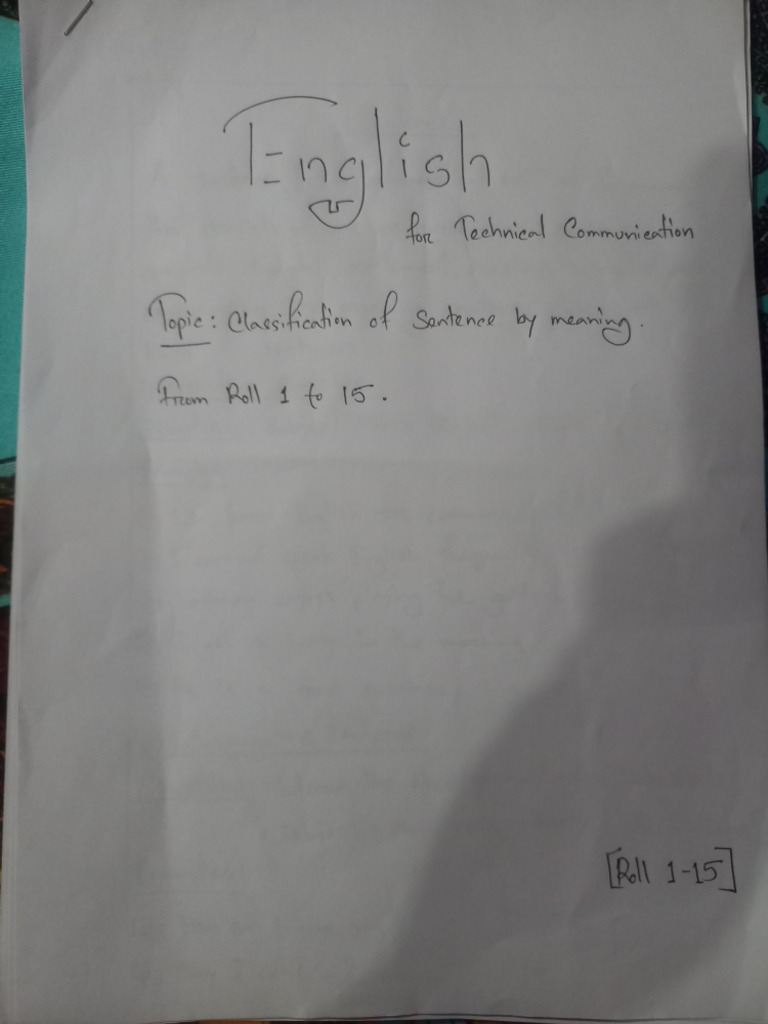 English
for Technical Communication
Topic: Classification of Sentence by meaning.
From Roll 1 to 15.
[Roll 1-15]